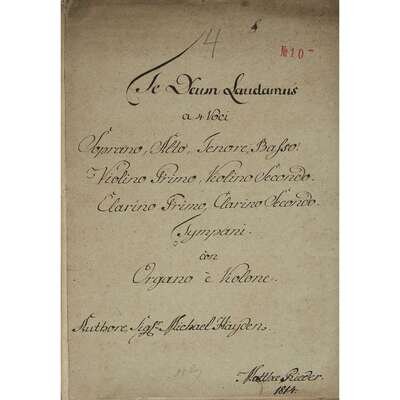 4
№10-
Te Deum Laudamus
a 4 Voci
Soprano, Alto, Tenore, Basso.
Violino Primo, Violino Secondo.
Clarino Primo, Clarino Secondo.
Tympani.
con
Organo è Violone.
Authore Sigre Michael Hayden.
Mathæ Rieder.
1814.